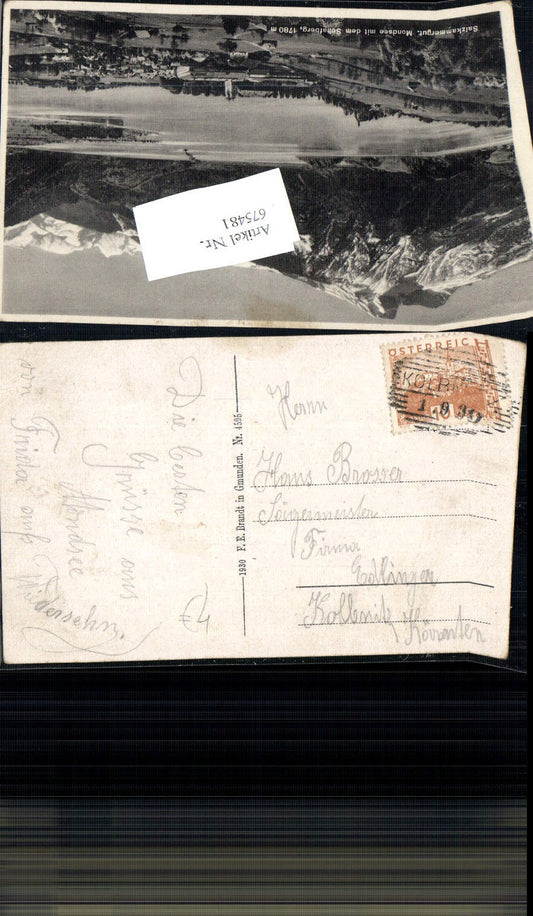 Salzkammergut. Mondsee mit dem Schafberg, 1780 m
Artikel Nr.
675481
Die besten
Grüsse aus
Mondsee
von
auf
Wiedersehn.
1930 F. E. Brandt in Gmunden. Nr. 4595
ÖSTERREICH
KOLBN
1.9.30
Herrn
Hans Brosser
Sägemeister
Firma
Edlinger
Kolbnitz
Kärnten